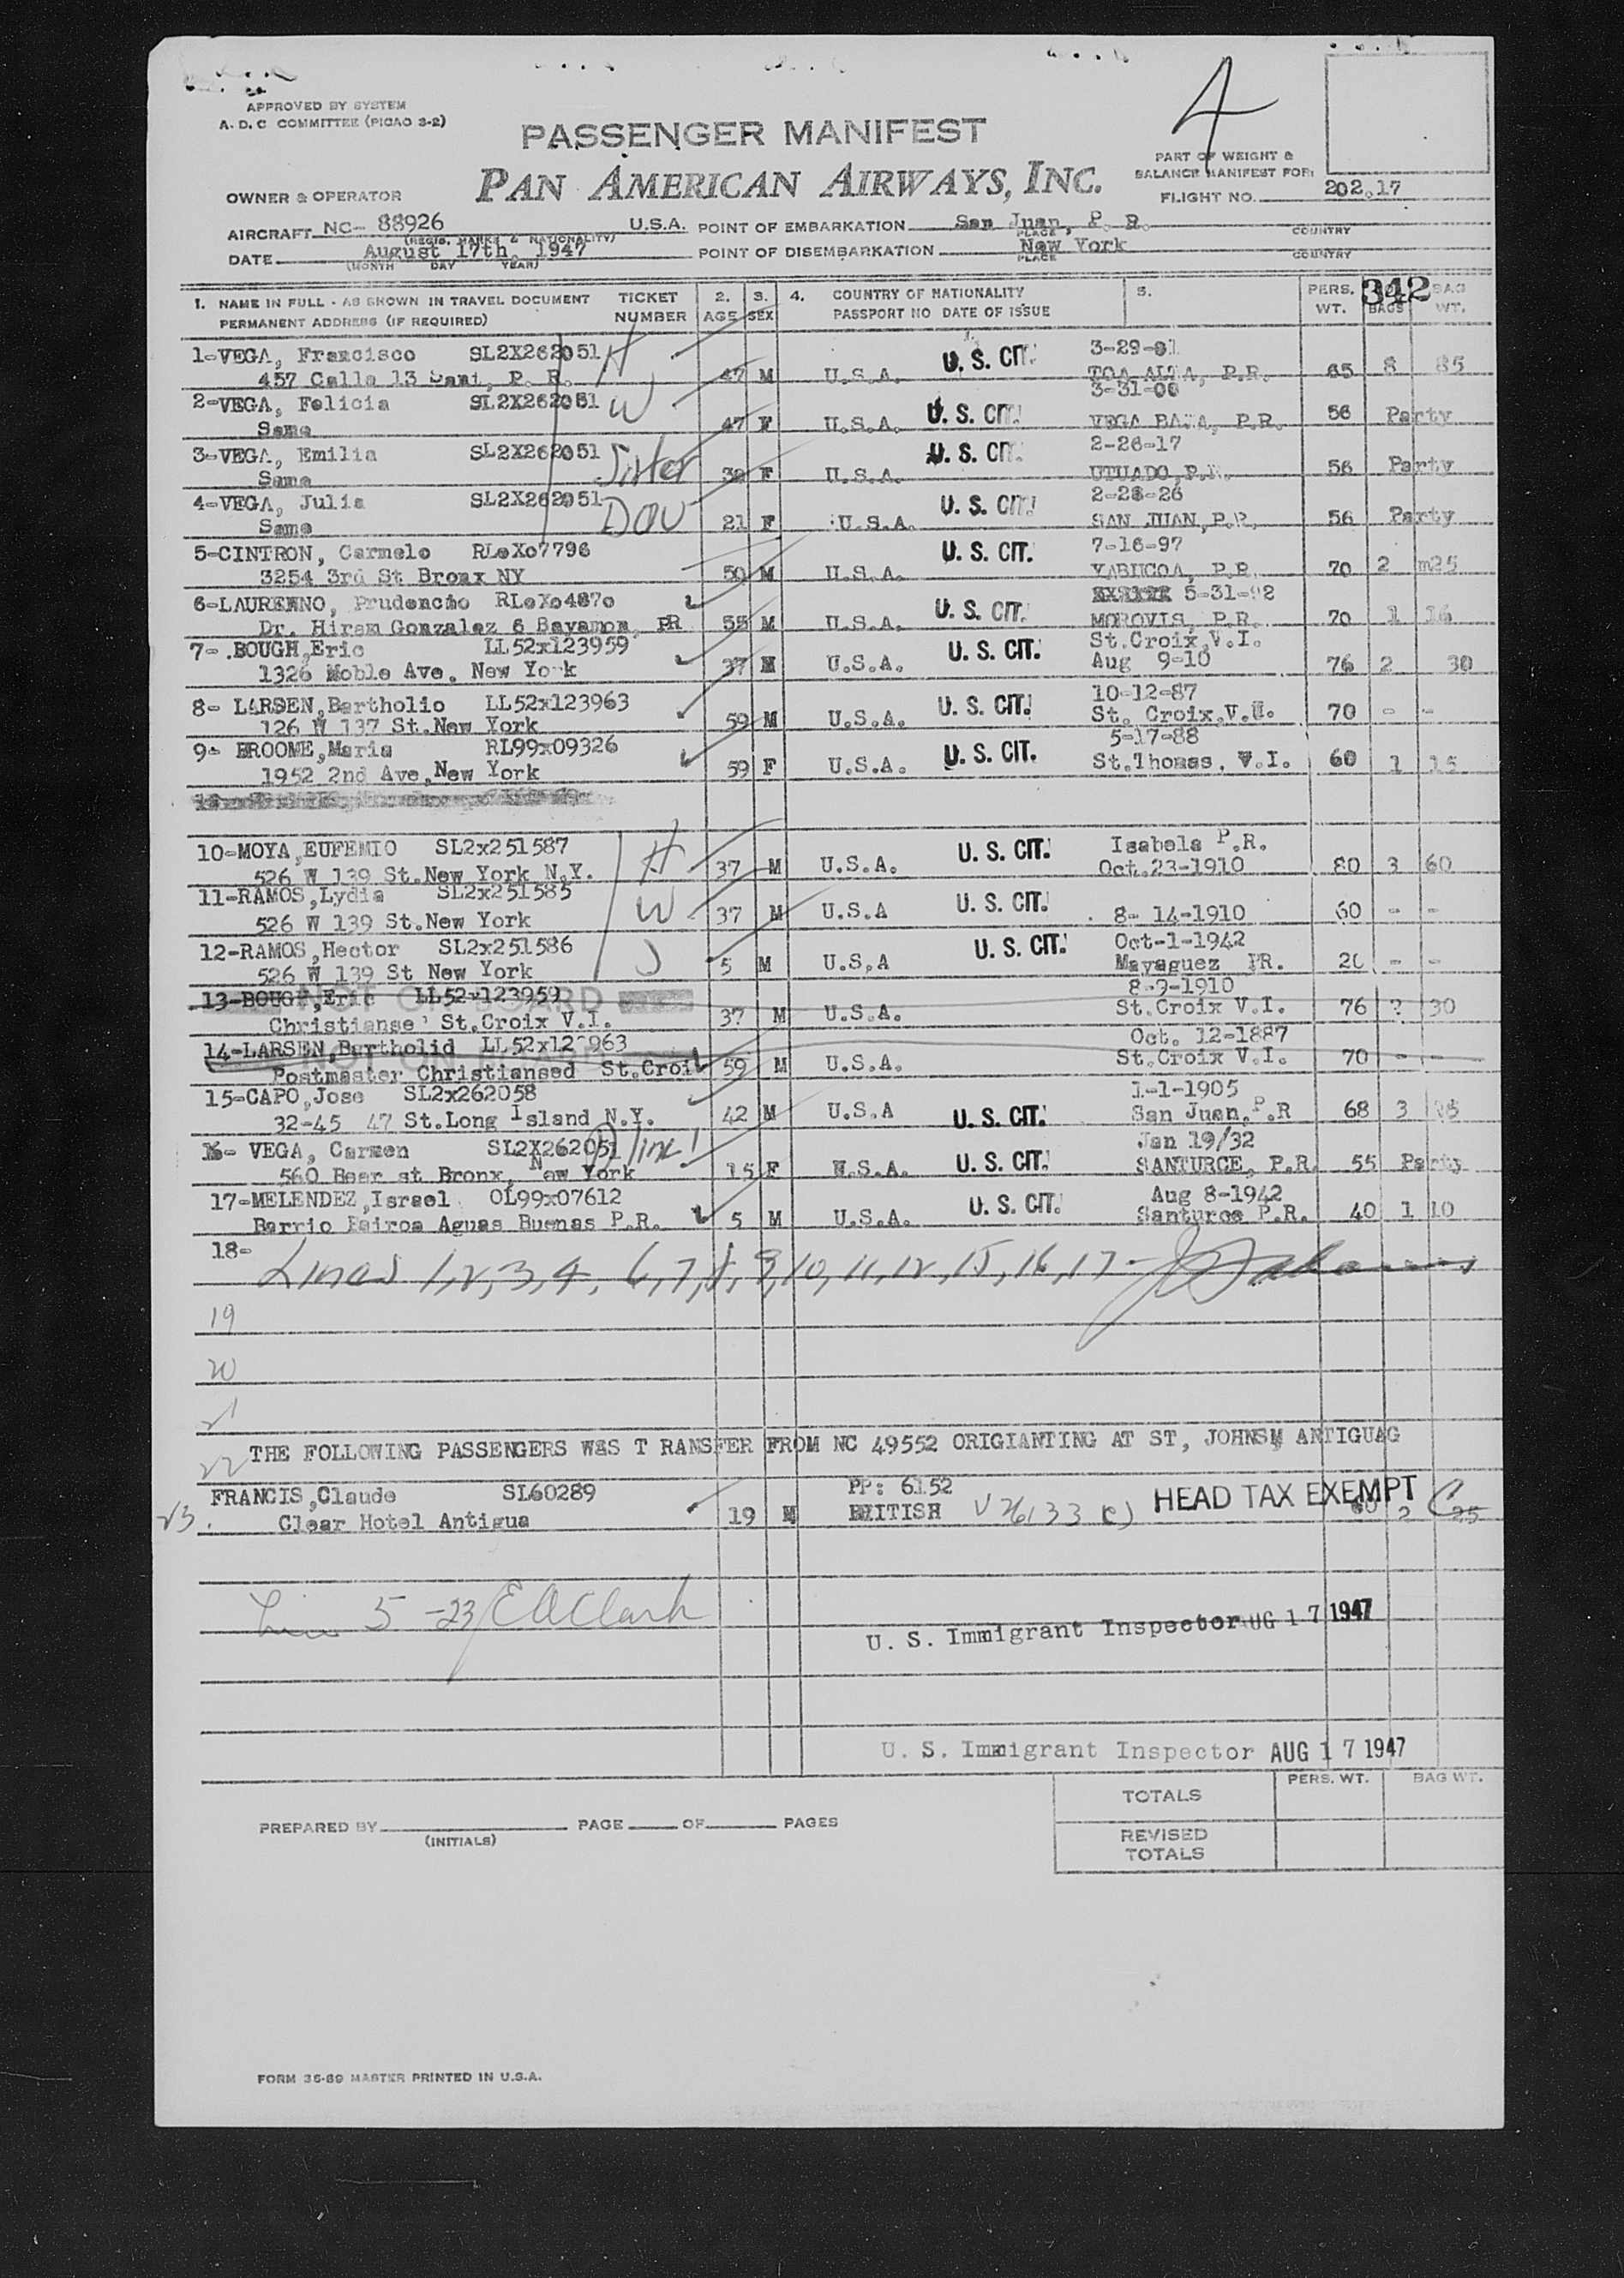 APPROVED BY SYSTEM
A. D. C COMMITTEE (PICAO 3-2)
PASSENGER MANIFEST
4
PART OF WEIGHT &
BALANCE MANIFEST FOR:
PAN AMERICAN AIRWAYS, INC.
OWNER & OPERATOR
FLIGHT NO. 202.17
AIRCRAFT NC- 88926 U.S.A. POINT OF EMBARKATION San Juan, P. R.
(REGIS. MARKS & NATIONALITY) PLACE COUNTRY
DATE August 17th, 1947 POINT OF DISEMBARKATION New York
(MONTH DAY YEAR) PLACE COUNTRY
1. NAME IN FULL - AS SHOWN IN TRAVEL DOCUMENT TICKET 2. 3. 4. COUNTRY OF NATIONALITY 5. PERS. 342 BAG
PERMANENT ADDRESS (IF REQUIRED) NUMBER AGE SEX PASSPORT NO DATE OF ISSUE WT. BAGS WT.
1-VEGA, Francisco SL2X262051 H U. S. CIT. 3-29-01
457 Calle 13 P. R. 47 M U.S.A. TOA ALTA, P.R. 65 8 85
2-VEGA, Felicia SL2X262051 W U. S. CIT. 3-31-00
Same 47 F U.S.A. VEGA BAJA, P.R. 56 Party
3-VEGA, Emilia SL2X262051 Sister U. S. CIT. 2-26-17
Same F U.S.A. UTUADO, P.R. 56 Party
4-VEGA, Julia SL2X262051 DAU U. S. CIT. 2-28-26
Same 21 F U.S.A. SAN JUAN, P.R. 56 Party
5-CINTRON, Carmelo RLoXo7796 U. S. CIT. 7-16-97
3254 3rd St Bronx NY 50 M U.S.A. YABUCOA, P.R. 70 2 m25
6-LAURENNO, Prudencio RLoXo487o U. S. CIT. 5-31-92
Dr. Hiram Gonzalez 6 Bayamon, PR 55 M U.S.A. MOROVIS, P.R. 70 1 16
7- .BOUGH,Eric LL52x123959 U. S. CIT. St.Croix,V.I.
1326 Noble Ave. New York 37 M U.S.A. Aug 9-10 76 2 30
8- LARSEN,Bartholio LL52x123963 U. S. CIT. 10-12-87
126 W 137 St.New York 59 M U.S.A. St. Croix,V.I. 70 - -
9- BROOME,Maria RL99x09326 U. S. CIT. 5-17-88
1952 2nd Ave,New York 59 F U.S.A. St.Thomas, V.I. 60 1 15
10-MOYA,EUFEMIO SL2x251587 H U. S. CIT. Isabela P.R.
526 W 139 St.New York N.Y. 37 M U.S.A. Oct.23-1910 80 3 60
11-RAMOS,Lydia SL2x251585 W U. S. CIT.
526 W 139 St.New York 37 M U.S.A 8- 14-1910 60 - -
12-RAMOS,Hector SL2x251586 S U. S. CIT. Oct-1-1942
526 W 139 St New York 5 M U.S.A Mayaguez PR. 20 - -
13-BOUGH,Eric LL52x123959 NOT ON BOARD 8-9-1910
Christianse St.Croix V.I. 37 M U.S.A. St.Croix V.I. 76 2 30
14-LARSEN,Bartholid LL52x123963 Oct. 12-1887
Postmaster Christiansed St.Croi 59 M U.S.A. St.Croix V.I. 70 - -
15-CAPO,Jose SL2x262058 1-1-1905
32-45 47 St.Long Island N.Y. 42 M U.S.A U. S. CIT. San Juan,P.R 68 3
16- VEGA, Carmen SL2X262051 line 1 Jan 19/32
560 Beer st Bronx, New York 15 F U.S.A. U. S. CIT. SANTURCE, P.R. 55 Party
17-MELENDEZ,Israel OL99x07612 U. S. CIT. Aug 8-1942
Barrio Bairoa Aguas Buenas P.R. 5 M U.S.A. Santurce P.R. 40 1 10
18-
Lines 1,2,3,4, 6,7,8,9,10,11,12,15,16,17-
19
20
21
22 THE FOLLOWING PASSENGERS WAS T RANSFER FROM NC 49552 ORIGIANTING AT ST, JOHNSM ANTIGUAG
FRANCIS,Claude SL60289 PP: 6152 HEAD TAX EXEMPT
23. Clear Hotel Antigua 19 M BRITISH 60 2 25
Line 5 -23/ E A Clark
U. S. Immigrant Inspector AUG 17 1947
U. S. Immigrant Inspector AUG 17 1947
PERS. WT. BAG WT.
TOTALS
PREPARED BY PAGE OF PAGES
(INITIALS)
REVISED
TOTALS
FORM 36-69 MASTER PRINTED IN U.S.A.